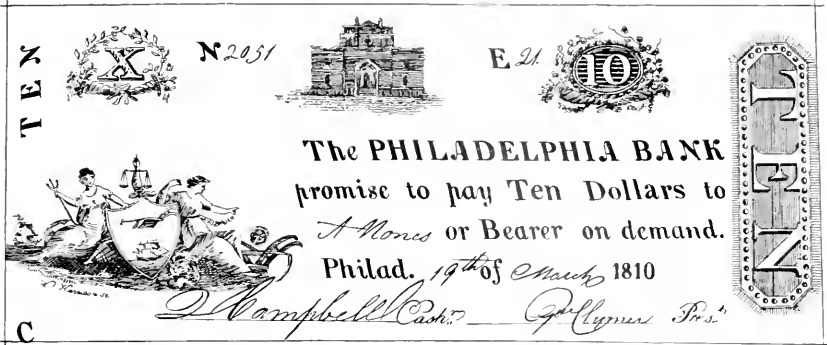 TEN
X
N 2051
E 21.
10
TEN
The PHILADELPHIA BANK
promise to pay Ten Dollars to
A Nones or Bearer on demand.
Philad. 19th of March 1810
Campbell Cashr.
Geo Clymer Prest.
C